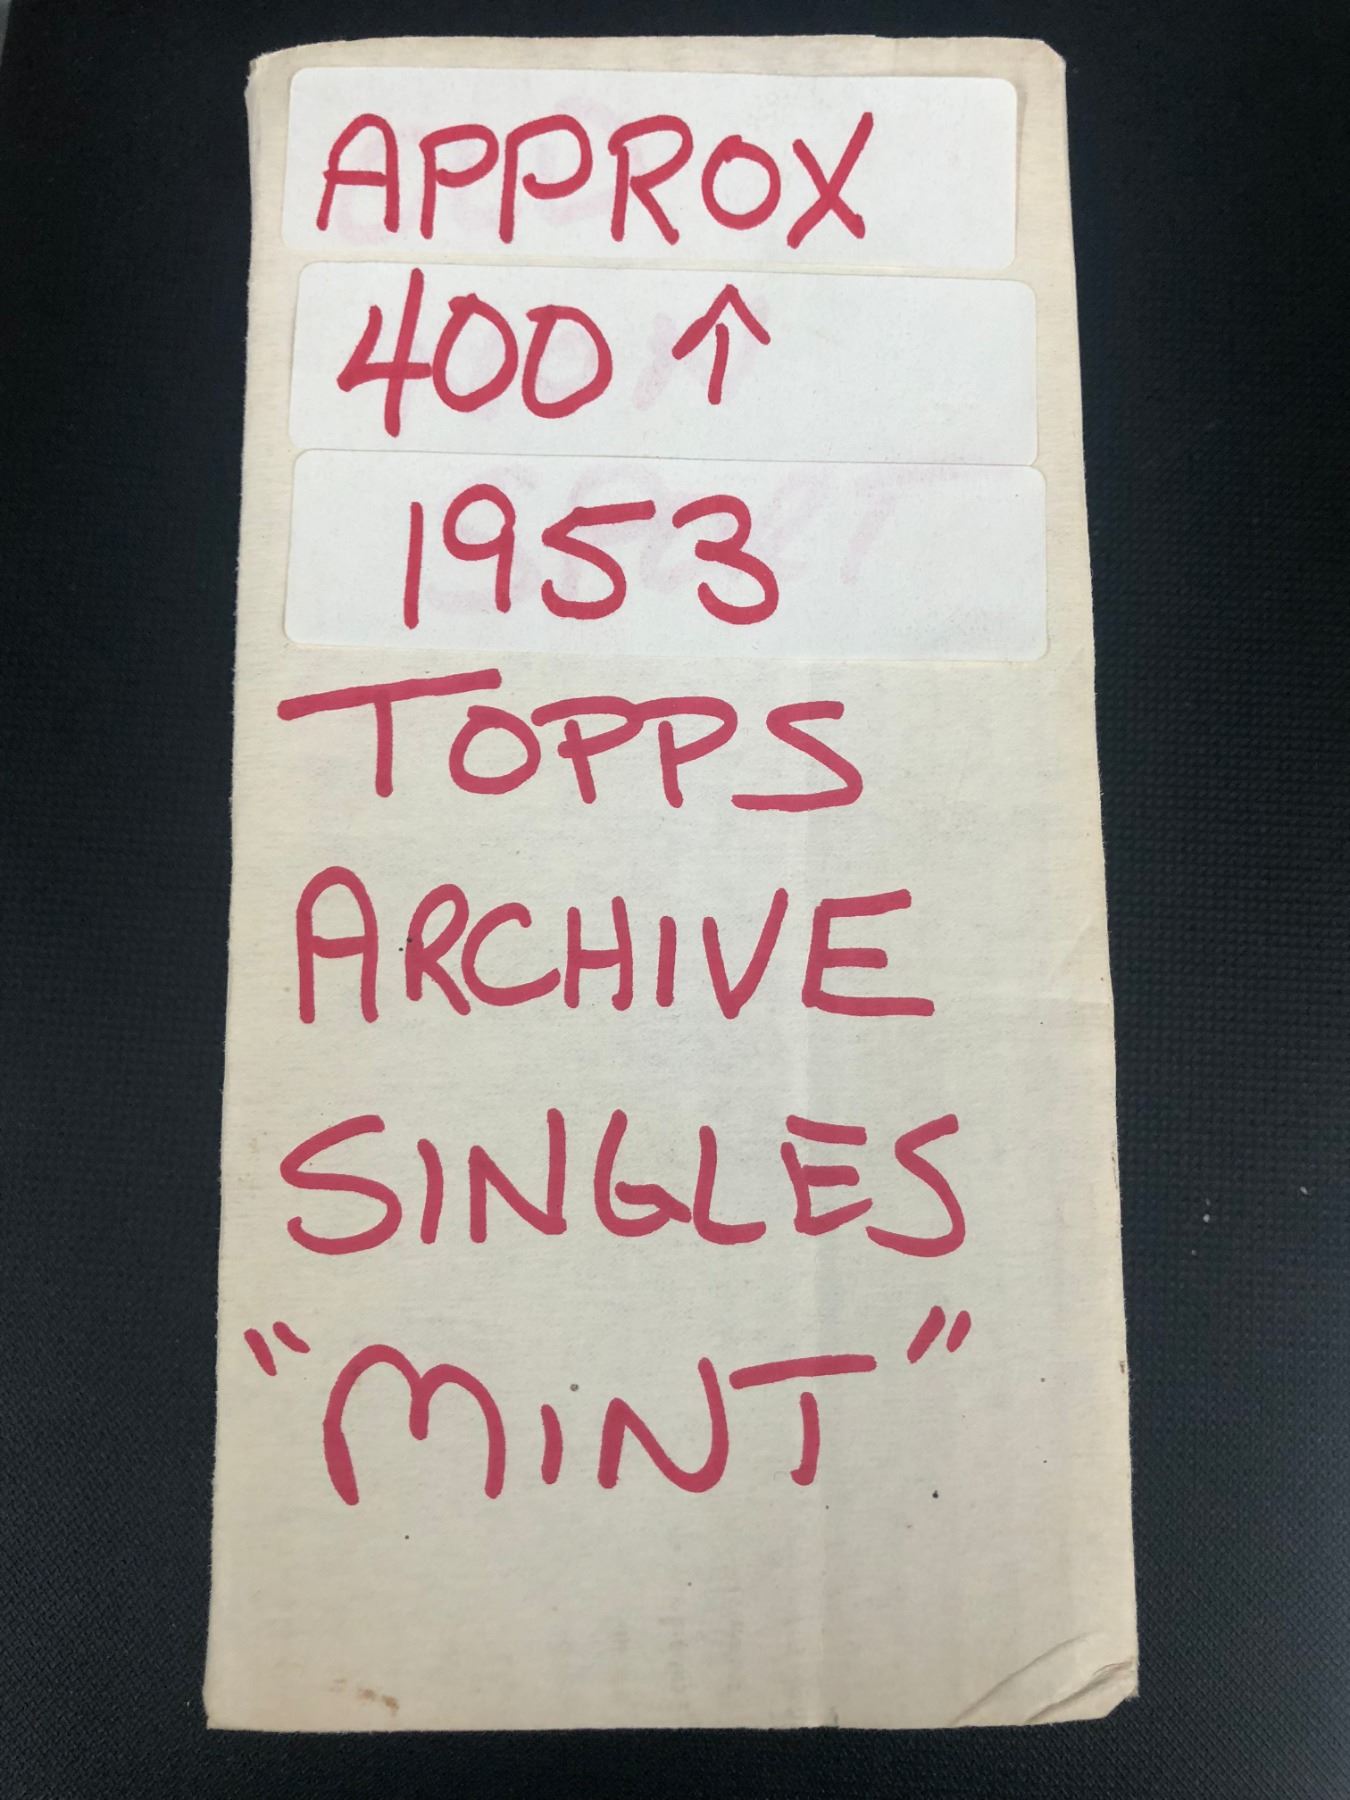 APPROX
400 ↑
1953
TOPPS
ARCHIVE
SINGLES
"MINT"